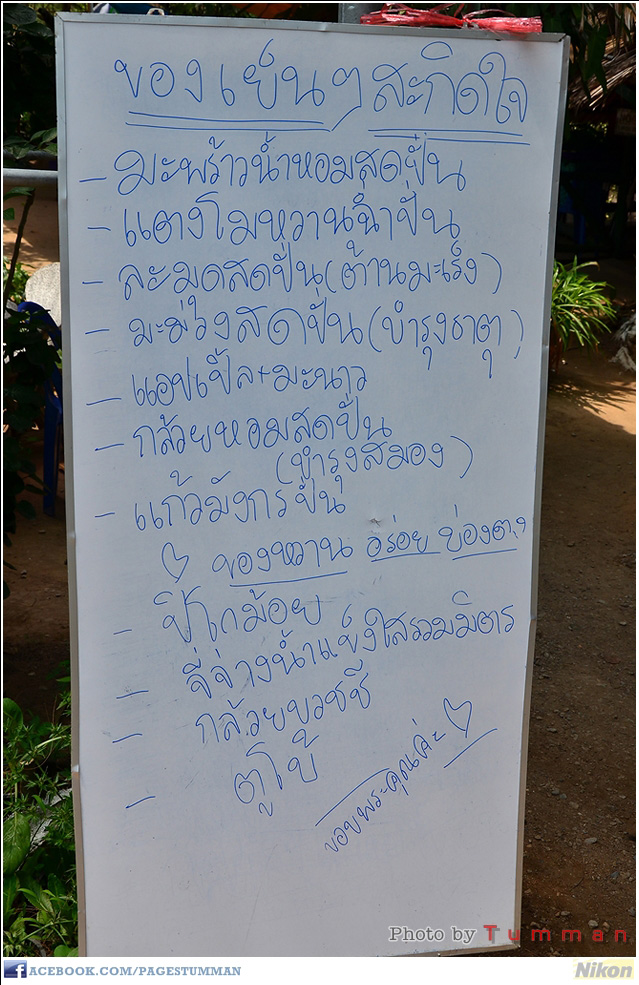 ของเย็นๆ สะกิดใจ
- มะพร้าวน้ำหอมสดปั่น
- แตงโมหวานฉ่ำปั่น
- ละมุดสดปั่น (ต้านมะเร็ง)
- มะม่วงสดปั่น (บำรุงธาตุ)
- แอปเปิ้ล+มะนาว
- กล้วยหอมสดปั่น
(บำรุงสมอง)
- แก้วมังกรปั่น
♡ ของหวาน อร่อย
- ปิโกม้อย
- จี่จ่างน้ำแข็งใสรวมมิตร
- กล้วยบวชชี
- ตูโบ้
ขอบพระคุณค่ะ ♡
Photo by Tumman
FACEBOOK.COM/PAGESTUMMAN
Nikon